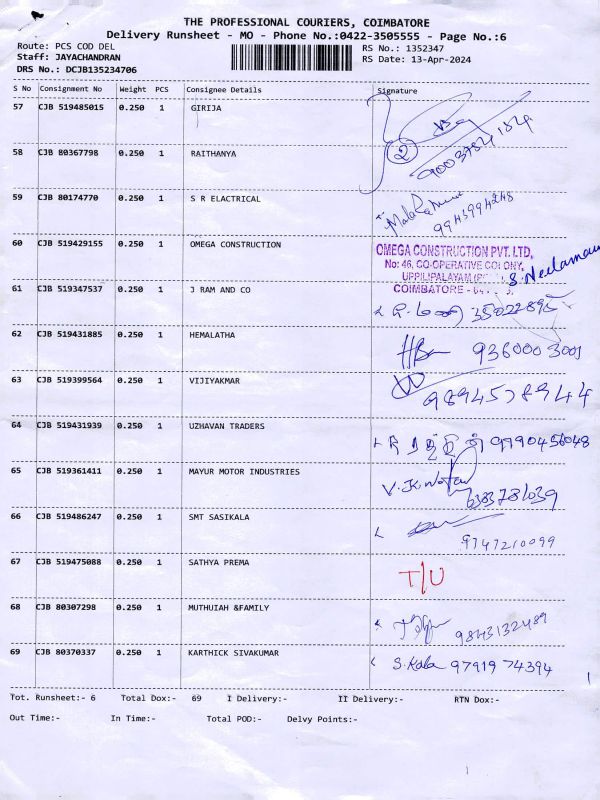 THE PROFESSIONAL COURIERS, COIMBATORE
Delivery Runsheet - MO - Phone No.:0422-3505555 - Page No.:6
Route: PCS COD DEL RS No.: 1352347
Staff: JAYACHANDRAN RS Date: 13-Apr-2024
DRS No.: DCJB135234706
S No Consignment No Weight PCS Consignee Details Signature
57 CJB 519485015 0.250 1 GIRIJA
2
58 CJB 80367798 0.250 1 RAITHANYA
59 CJB 80174770 0.250 1 S R ELACTRICAL
9943994248
60 CJB 519429155 0.250 1 OMEGA CONSTRUCTION OMEGA CONSTRUCTION PVT. LTD,
No: 46, CO-OPERATIVE COLONY,
UPPILIPALAYAM S. Neelaman
COIMBATORE
61 CJB 519347537 0.250 1 J RAM AND CO 35022895
62 CJB 519431885 0.250 1 HEMALATHA 9360003001
63 CJB 519399564 0.250 1 VIJIYAKMAR 9894578944
64 CJB 519431939 0.250 1 UZHAVAN TRADERS 9790456048
65 CJB 519361411 0.250 1 MAYUR MOTOR INDUSTRIES
66 CJB 519486247 0.250 1 SMT SASIKALA 9747210099
67 CJB 519475088 0.250 1 SATHYA PREMA T/U
68 CJB 80307298 0.250 1 MUTHUIAH &FAMILY 9843132489
69 CJB 80370337 0.250 1 KARTHICK SIVAKUMAR S. Kala 9791974394
Tot. Runsheet:- 6 Total Dox:- 69 I Delivery:- II Delivery:- RTN Dox:-
Out Time:- In Time:- Total POD:- Delvy Points:-